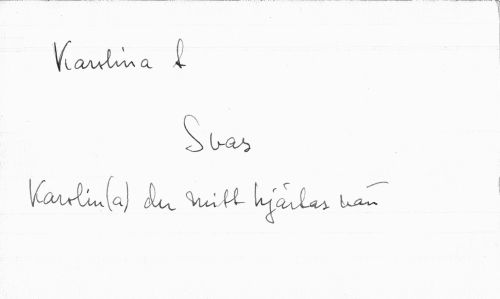 Karolina f
Svas
Karolin(a) du mitt hjärtas vän